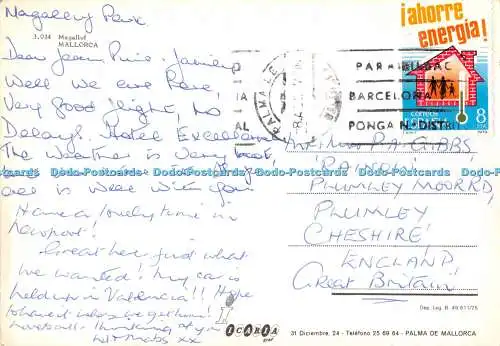 Magalluf Park
1.034 Magalluf
MALLORCA
Dear Jean, Pine, James,
Well we are here,
Very good flight, no
Delays. Hotel Excellent
The Weather is Very hot,
all is well with you
Have a lovely time in
Newport!
Great here, just what
we wanted! My car is
held up in Valencia!! Hope
to have it when we get home!
Love to all! Thinking of you
xx
¡ahorre
energia!
correos
ESPAÑA
8
PALMA DE
PARA
BARCELONA
PONGA N. DISTRI
P.A. GIBBS,
PLUMLEY MOOR RD,
PLUMLEY
CHESHIRE
ENGLAND
Great Britain
Dep. Leg. B 49.611/75
OCAROA
31 Diciembre, 24 - Teléfono 25 69 64 - PALMA DE MALLORCA
Dodo-Postcards Dodo-Postcards Dodo-Postcards Dodo-Postcards Dodo-Postcards Dodo-Postcards